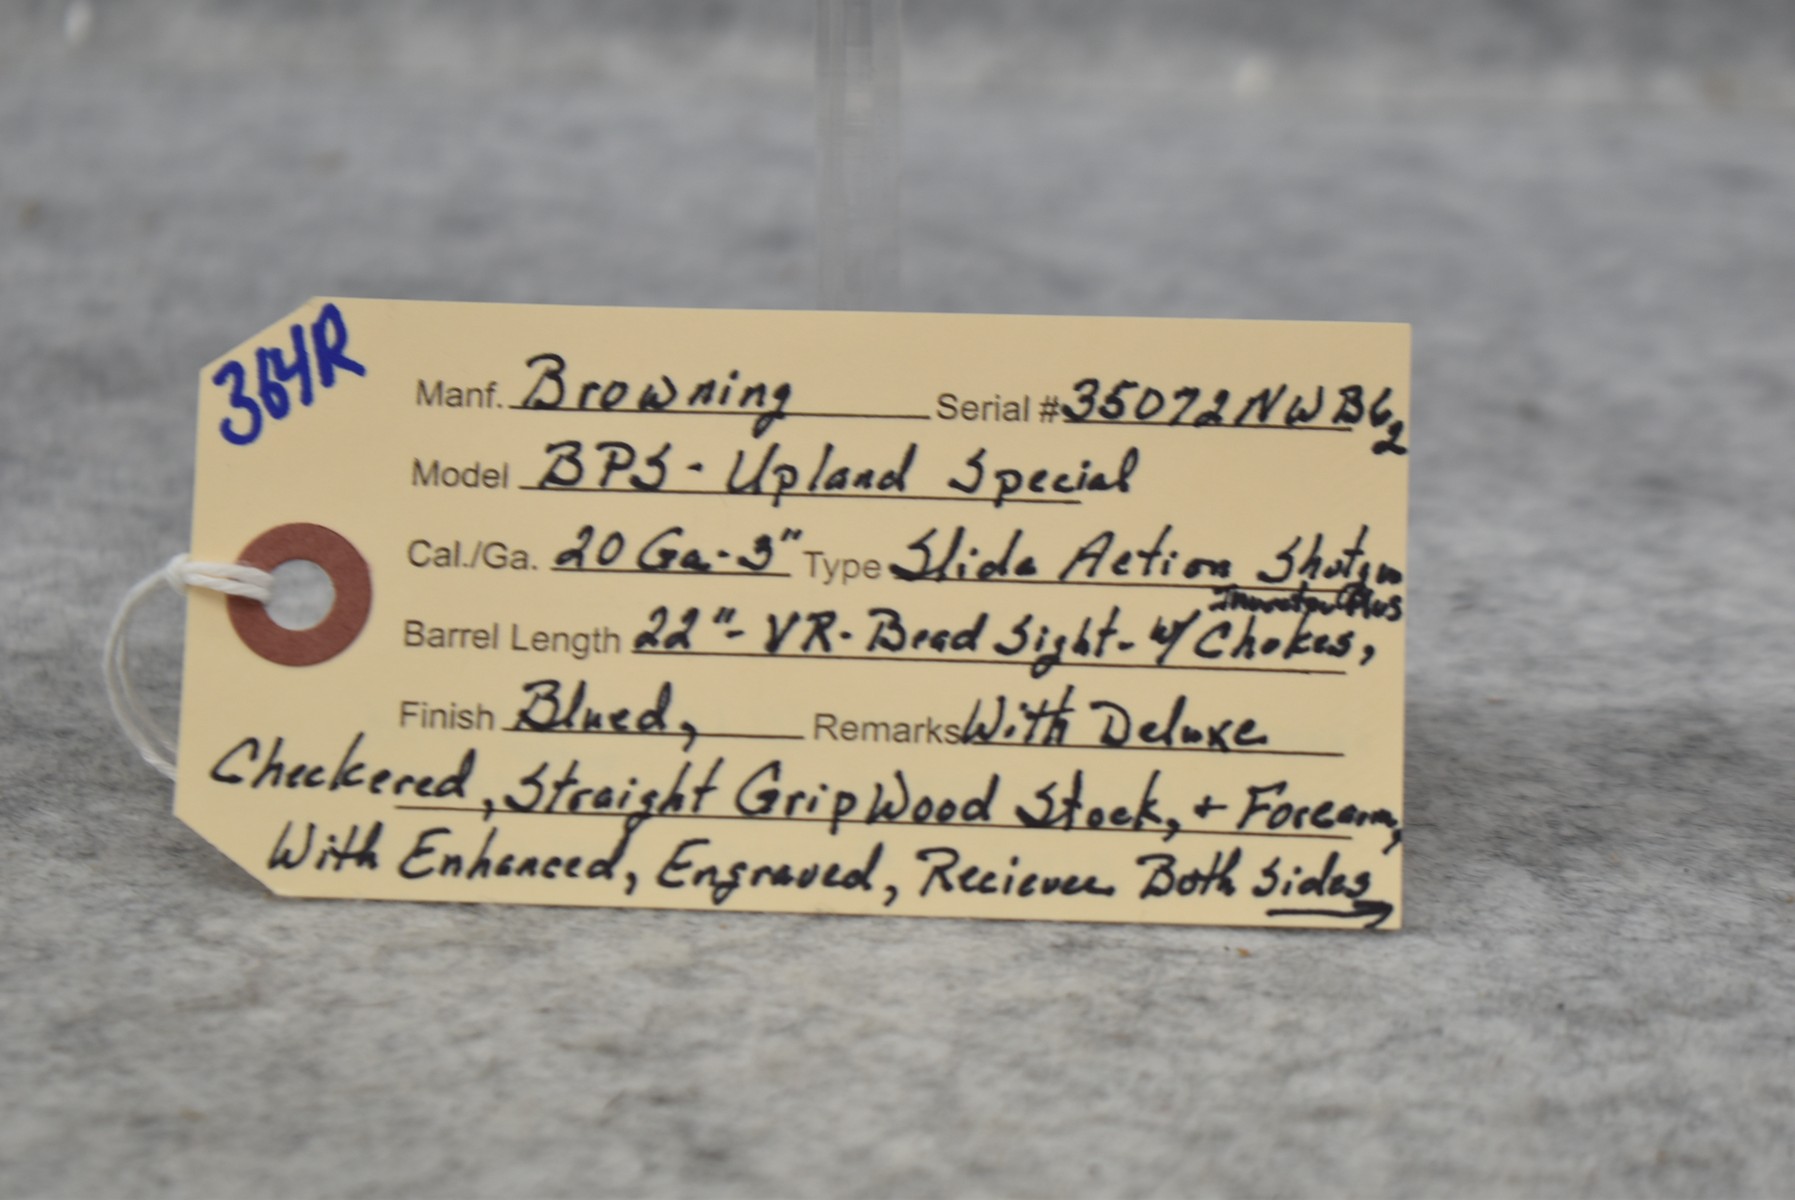 364R
Manf. Browning Serial # 35072NWB62
Model BPS - Upland Special
Cal./Ga. 20 Ga - 3" Type Slide Action Shotgun
Invector Plus
Barrel Length 22" - VR - Bead Sight - w/ Chokes,
Finish Blued, Remarks With Deluxe
Checkered, Straight Grip Wood Stock, + Forearm,
With Enhanced, Engraved, Reciever Both Sides →